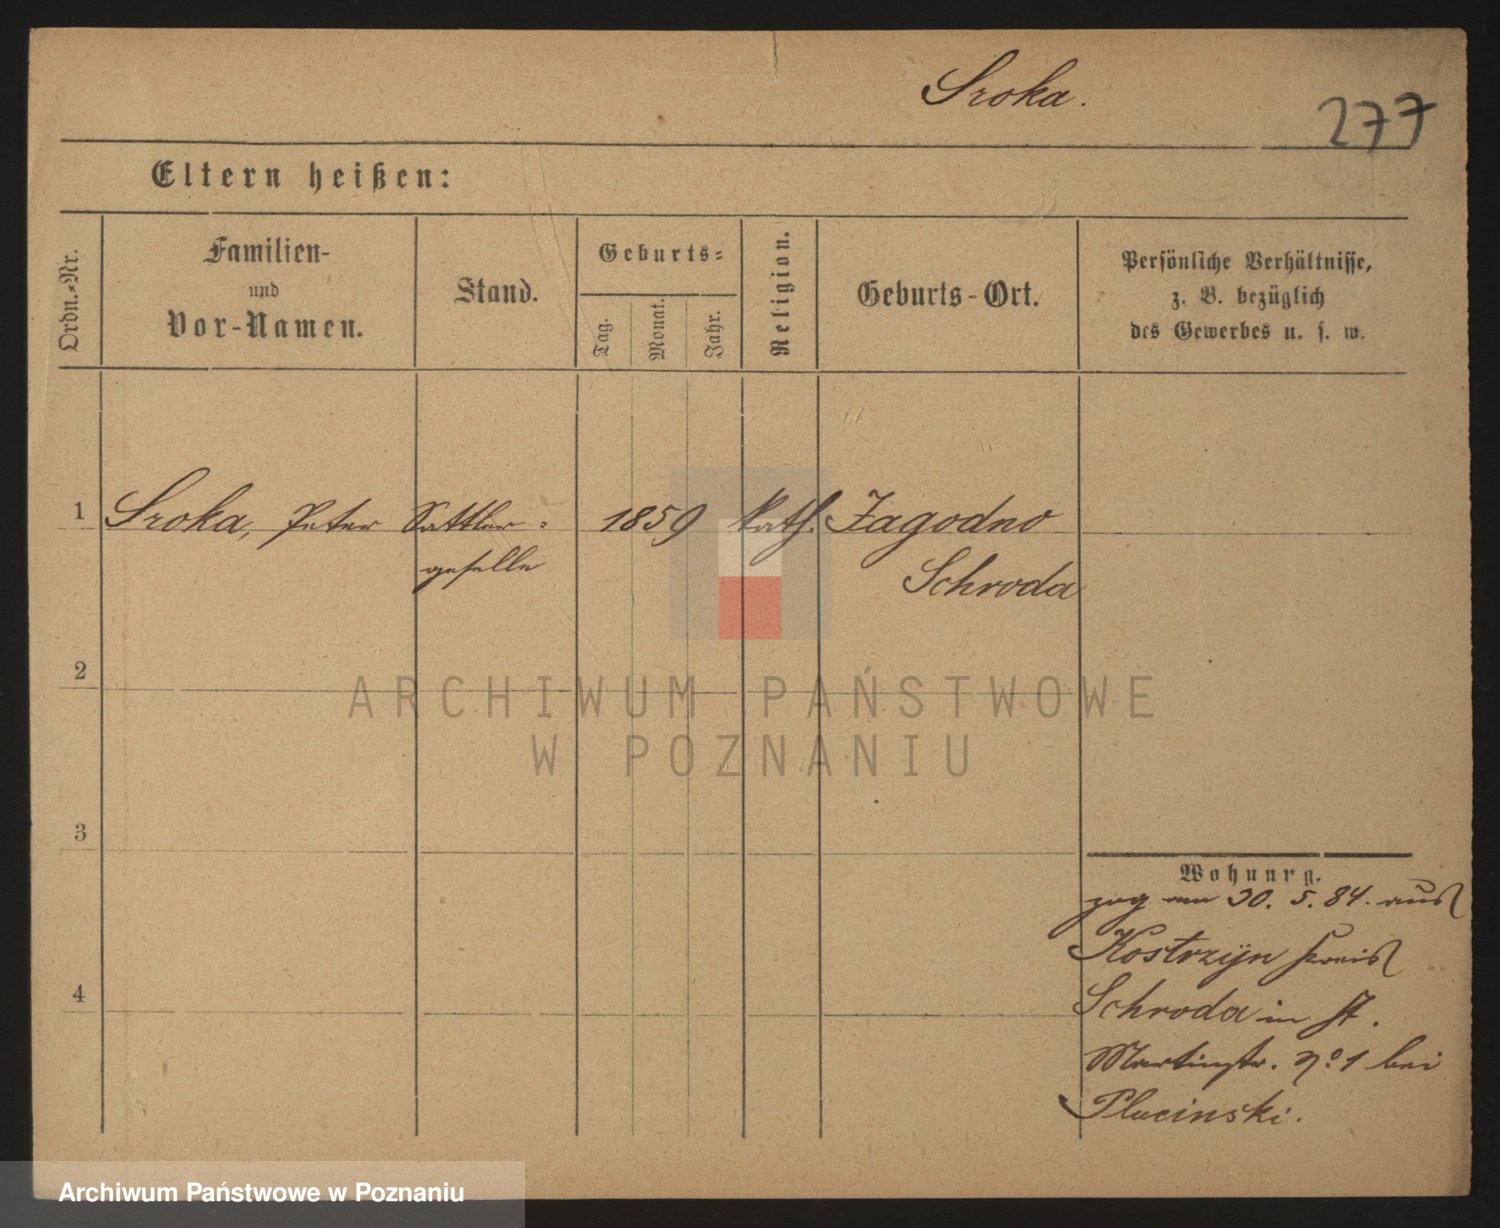 Sroka.
277
Eltern heißen:
Ordn.-Nr.
Familien-
und
Vor-Namen.
Stand.
Geburts-
Tag.
Monat.
Jahr.
Religion.
Geburts-Ort.
Persönliche Verhältnisse,
z. B. bezüglich
des Gewerbes u. s. w.
1 Sroka, Peter Sattler- 1859 kath. Jagodno
geselle Schroda
2
ARCHIWUM PAŃSTWOWE
W POZNANIU
3
Wohnung.
zog am 30. 5. 84. aus
Kostrzyn Kreis
4
Schroda in St.
Martinstr. No. 1 bei
Plucinski.
Archiwum Państwowe w Poznaniu